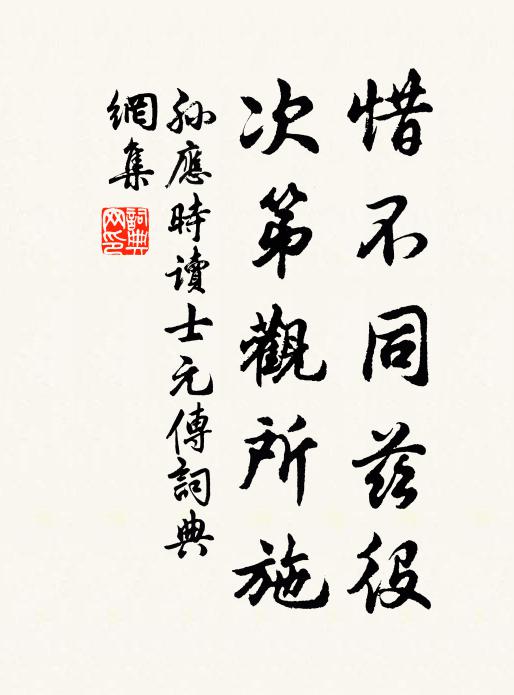 惜不同茲役
次第觀所施
孫應時讀士元傳詞典
網集
詞典網印